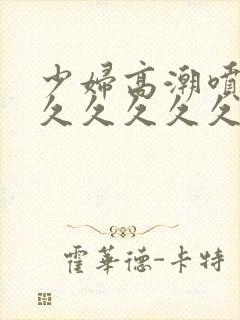 少婦高潮噴
久久久久久
霍華德-卡特